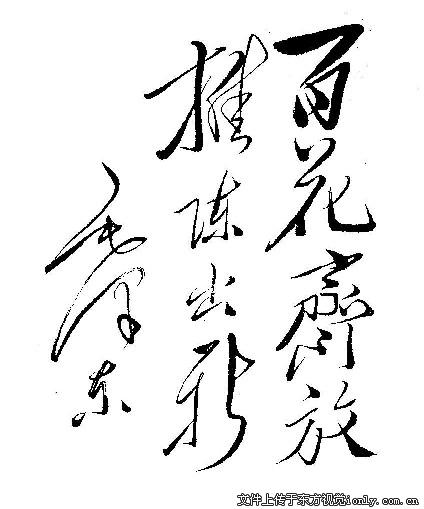 百花齊放
推陈出新
毛泽东
文件上传于东方视觉ionly.com.cn